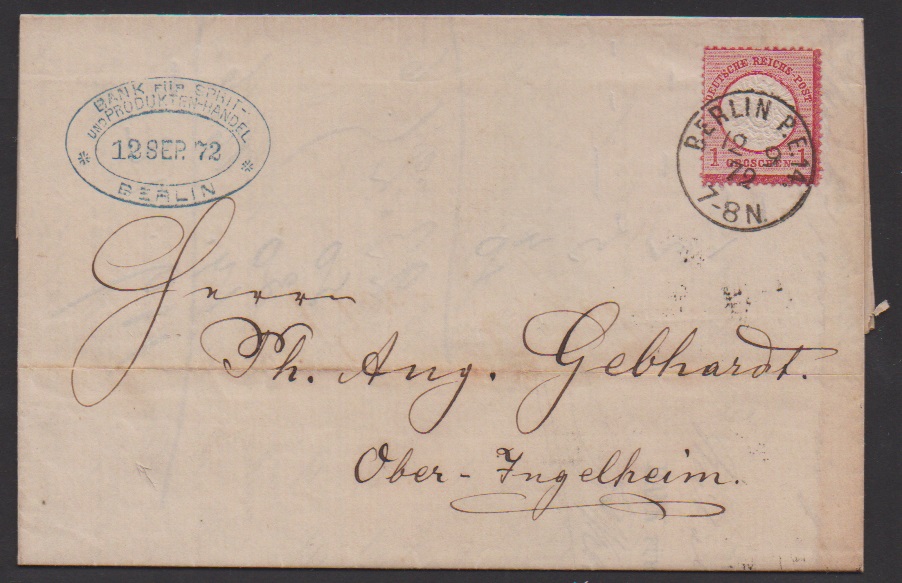 BANK FÜR SPRIT-
UND PRODUKTEN-HANDEL
12 SEP. 72
BERLIN
DEUTSCHE REICHS-POST
1 GROSCHEN 1
BERLIN P.E.14
12 9
72
7-8N.
Herrn
Ph. Aug. Gebhardt.
Ober-Ingelheim.